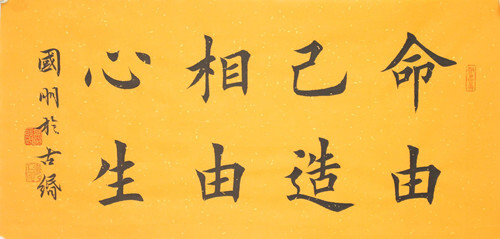 命由
己造
相由
心生
國朋於古絳